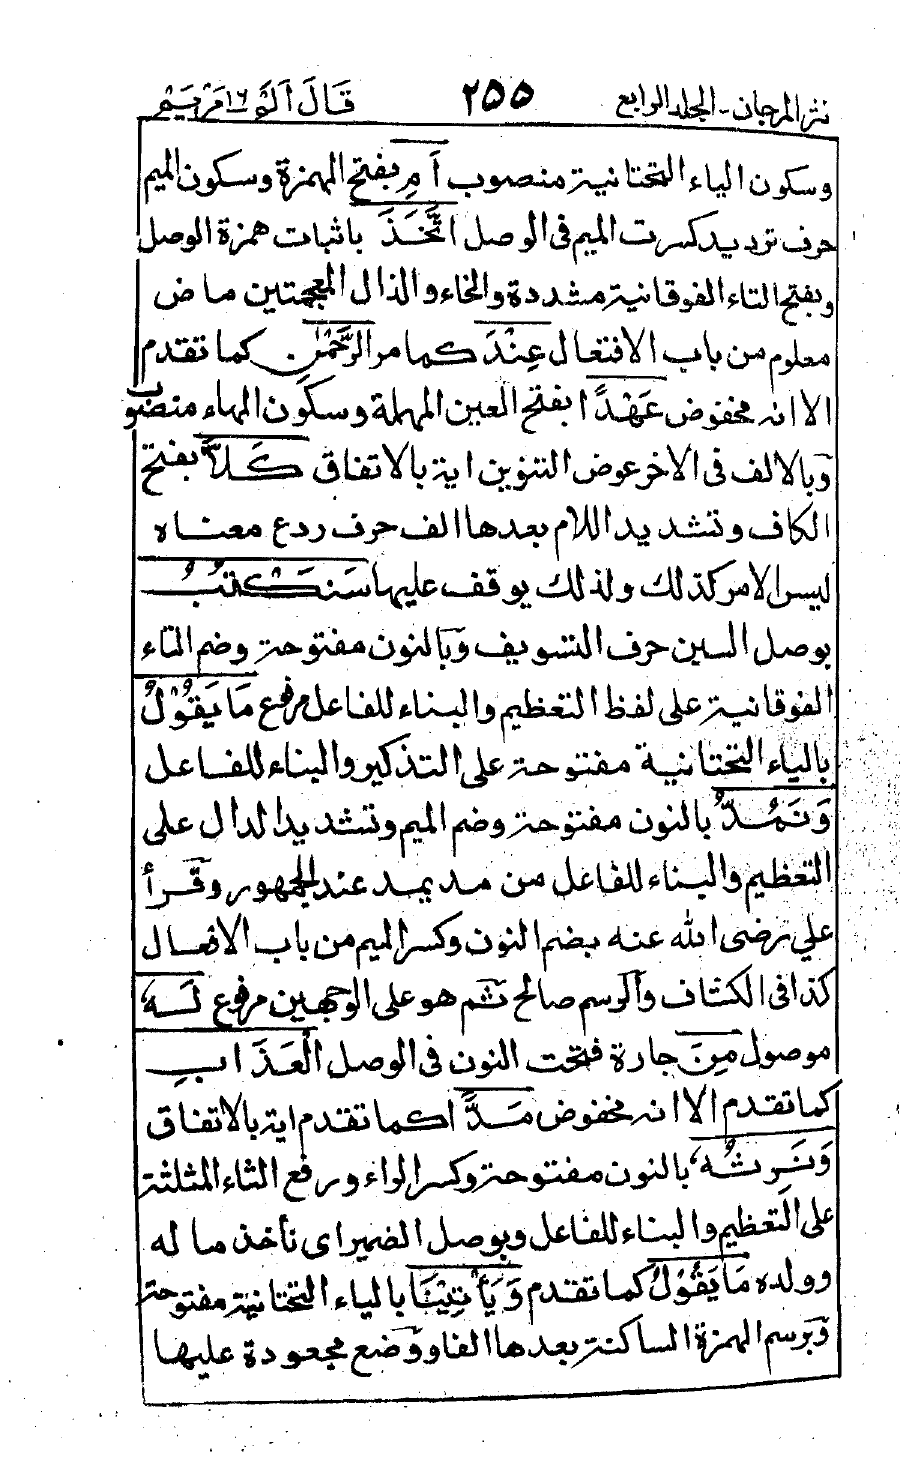 نثر المرجان - المجلد الرابع ٢٥٥ قَالَ اَلَمْ ١٦ مَرْيَم
وسكون الياء التحتانية منصوب أَمِ بفتح الهمزة وسكون الميم
حرف ترديد كسرت الميم فى الوصل اتَّخَذَ باثبات همزة الوصل
وبفتح التاء الفوقانية مشددة والخاء والذال المعجمتين ماض
معلوم من باب الافتعال عِنْدَ كما مر الرَّحْمٰنِ كما تقدم
الا انه مخفوض عَهْدًا بفتح العين المهملة وسكون الهاء منصوب
وبالالف فى الاخر عوض التنوين اية بالاتفاق كَلَّا بفتح
الكاف وتشديد اللام بعدها الف حرف ردع معناه
ليس الامر كذلك ولذلك يوقف عليها سَنَكْتُبُ
بوصل السين حرف التسويف وبالنون مفتوحة وضم التاء
الفوقانية على لفظ التعظيم والبناء للفاعل مرفوع مَا يَقُوْلُ
بالياء التحتانية مفتوحة على التذكير والبناء للفاعل
وَنَمُدُّ بالنون مفتوحة وضم الميم وتشديد الدال على
التعظيم والبناء للفاعل من مد يمد عند الجمهور وقرأ
علي رضى الله عنه بضم النون وكسر الميم من باب الافعال
كذا فى الكشاف والوسم صالح ثم هو على الوجهين مرفوع لَهٗ
موصول مِنَ جارة فتحت النون فى الوصل الْعَذَابِ
كما تقدم الا انه مخفوض مَدًّا كما تقدم اية بالاتفاق
وَنَرِثُهٗ بالنون مفتوحة وكسر الراء ورفع الثاء المثلثة
على التعظيم والبناء للفاعل وبوصل الضمير اى نأخذ ما له
وولده مَا يَقُوْلُ كما تقدم وَيَأْتِيْنَا بالياء التحتانية مفتوحة
وبرسم الهمزة الساكنة بعدها الفا ووضع مجعودة عليها